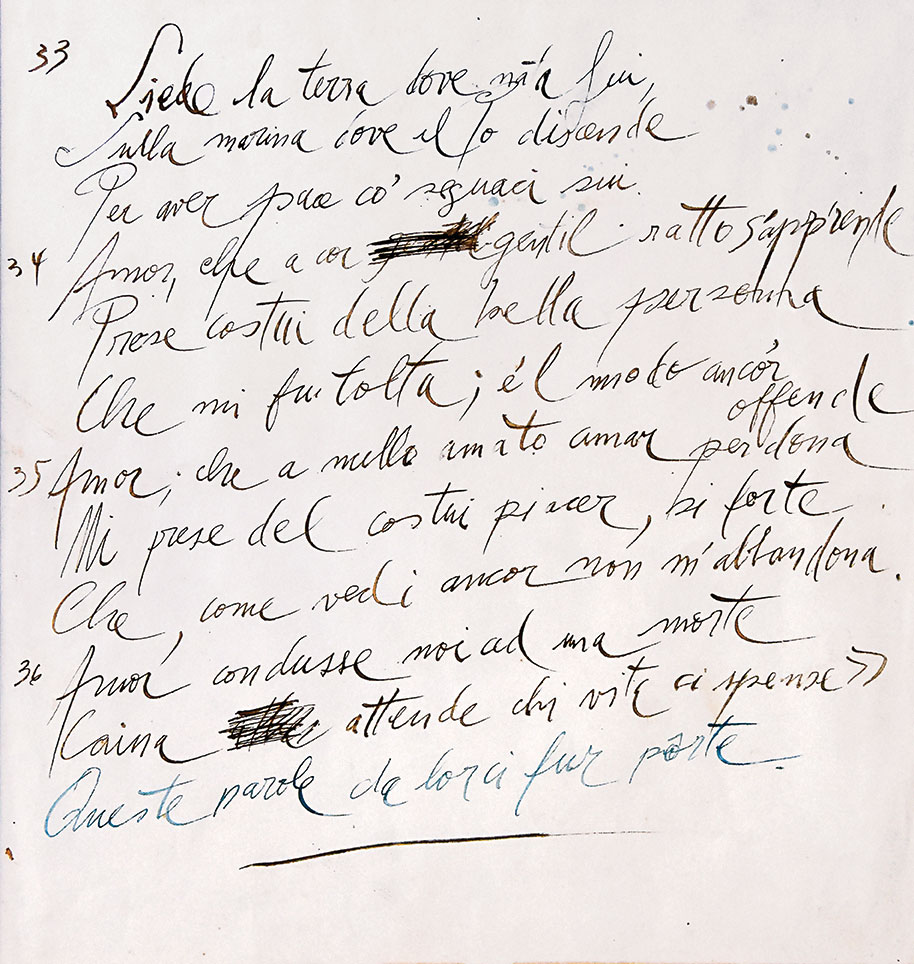 33
Siede la terra dove nata fui,
Sulla marina dove il Po discende
Per aver pace co' seguaci sui.
34 Amor, che a cor gentil ratto s'apprende
Prese costui della bella persona
Che mi fu tolta; e'l modo ancor
offende
35 Amor; che a nullo amato amar perdona
Mi prese del costui piacer, si forte
Che, come vedi ancor non m'abbandona.
36 Amor condusse noi ad una morte
Caina attende chi vita ci spense»
Queste parole da lor ci fur porte.